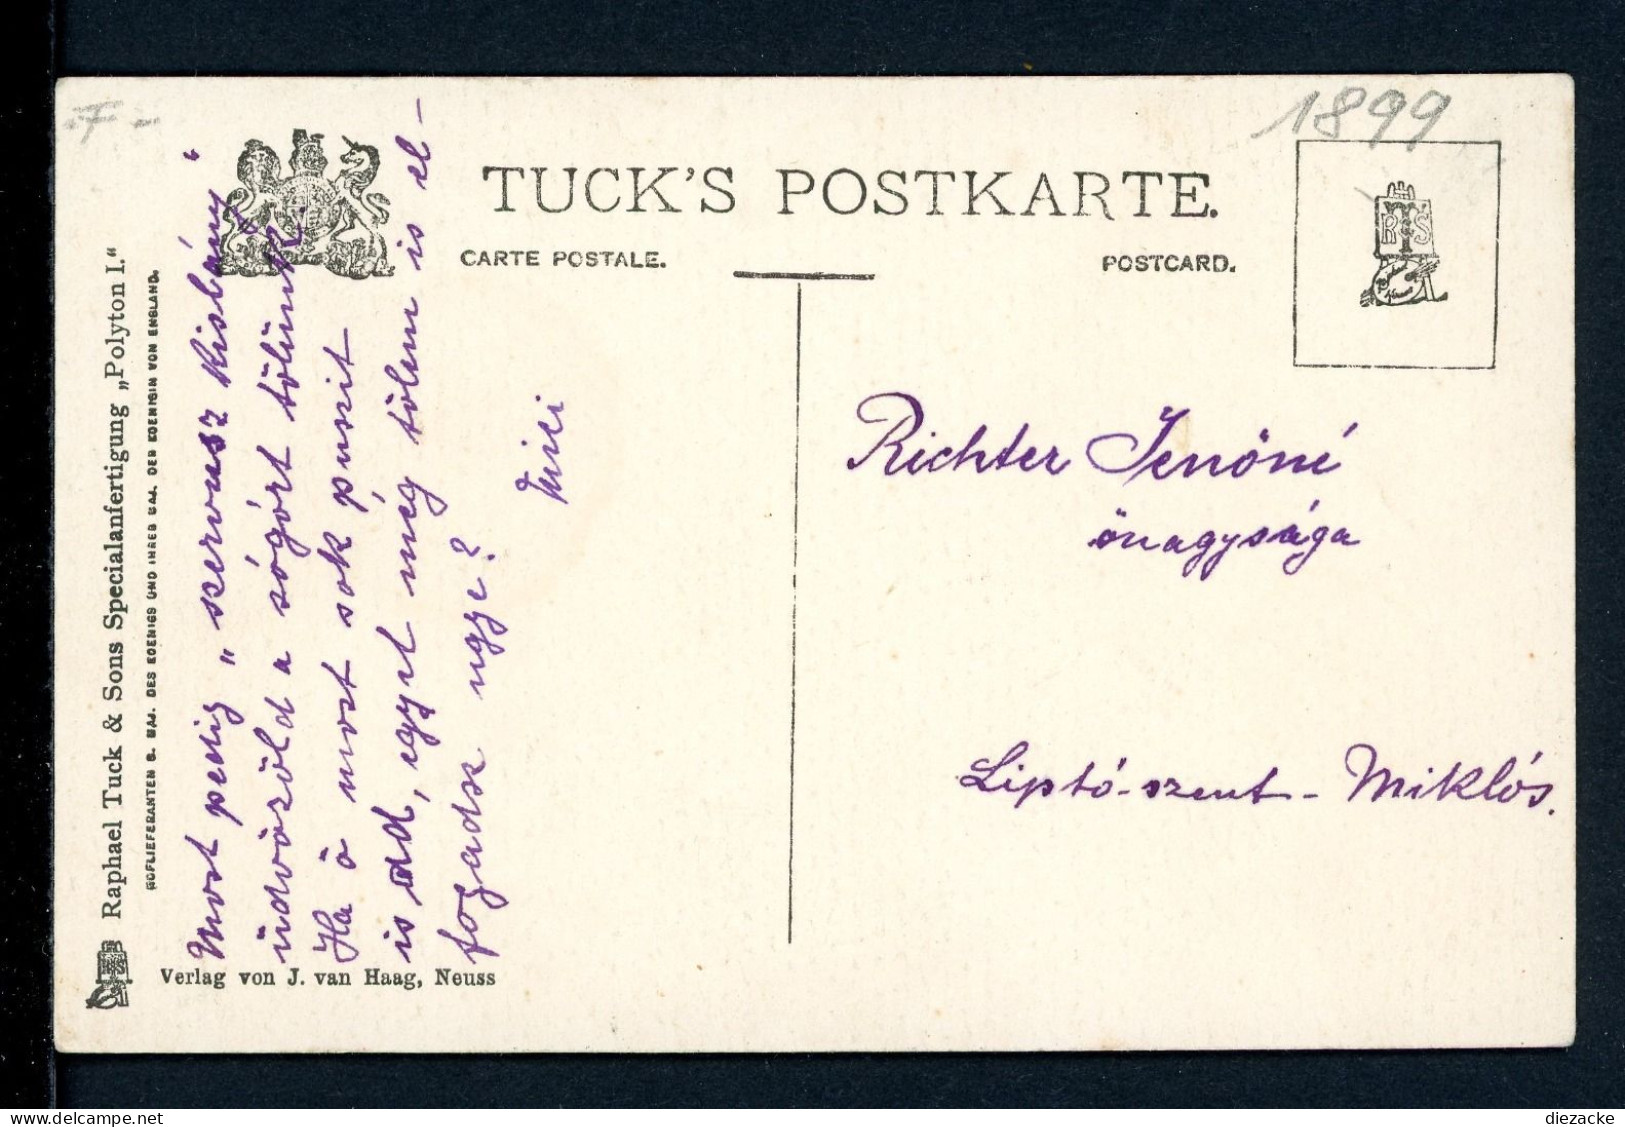 1899
TUCK'S POSTKARTE.
CARTE POSTALE.
POSTCARD.
Raphael Tuck & Sons Specialanfertigung „Polyton I.“
HOFLIEFERANTEN S. MAJ. DES KOENIGS UND IHRER MAJ. DER KOENIGIN VON ENGLAND.
Verlag von J. van Haag, Neuss
R T & S
Most pedig „szervusz kislány“
üdvözöld a sógórt tölünk!
Ha ö most sok puszit
is ad, egyet még tölem is el-
fogadsz ugye?
Mici
Richter Jenöné
önagysága
Liptó-szent-Miklós.
diezacke